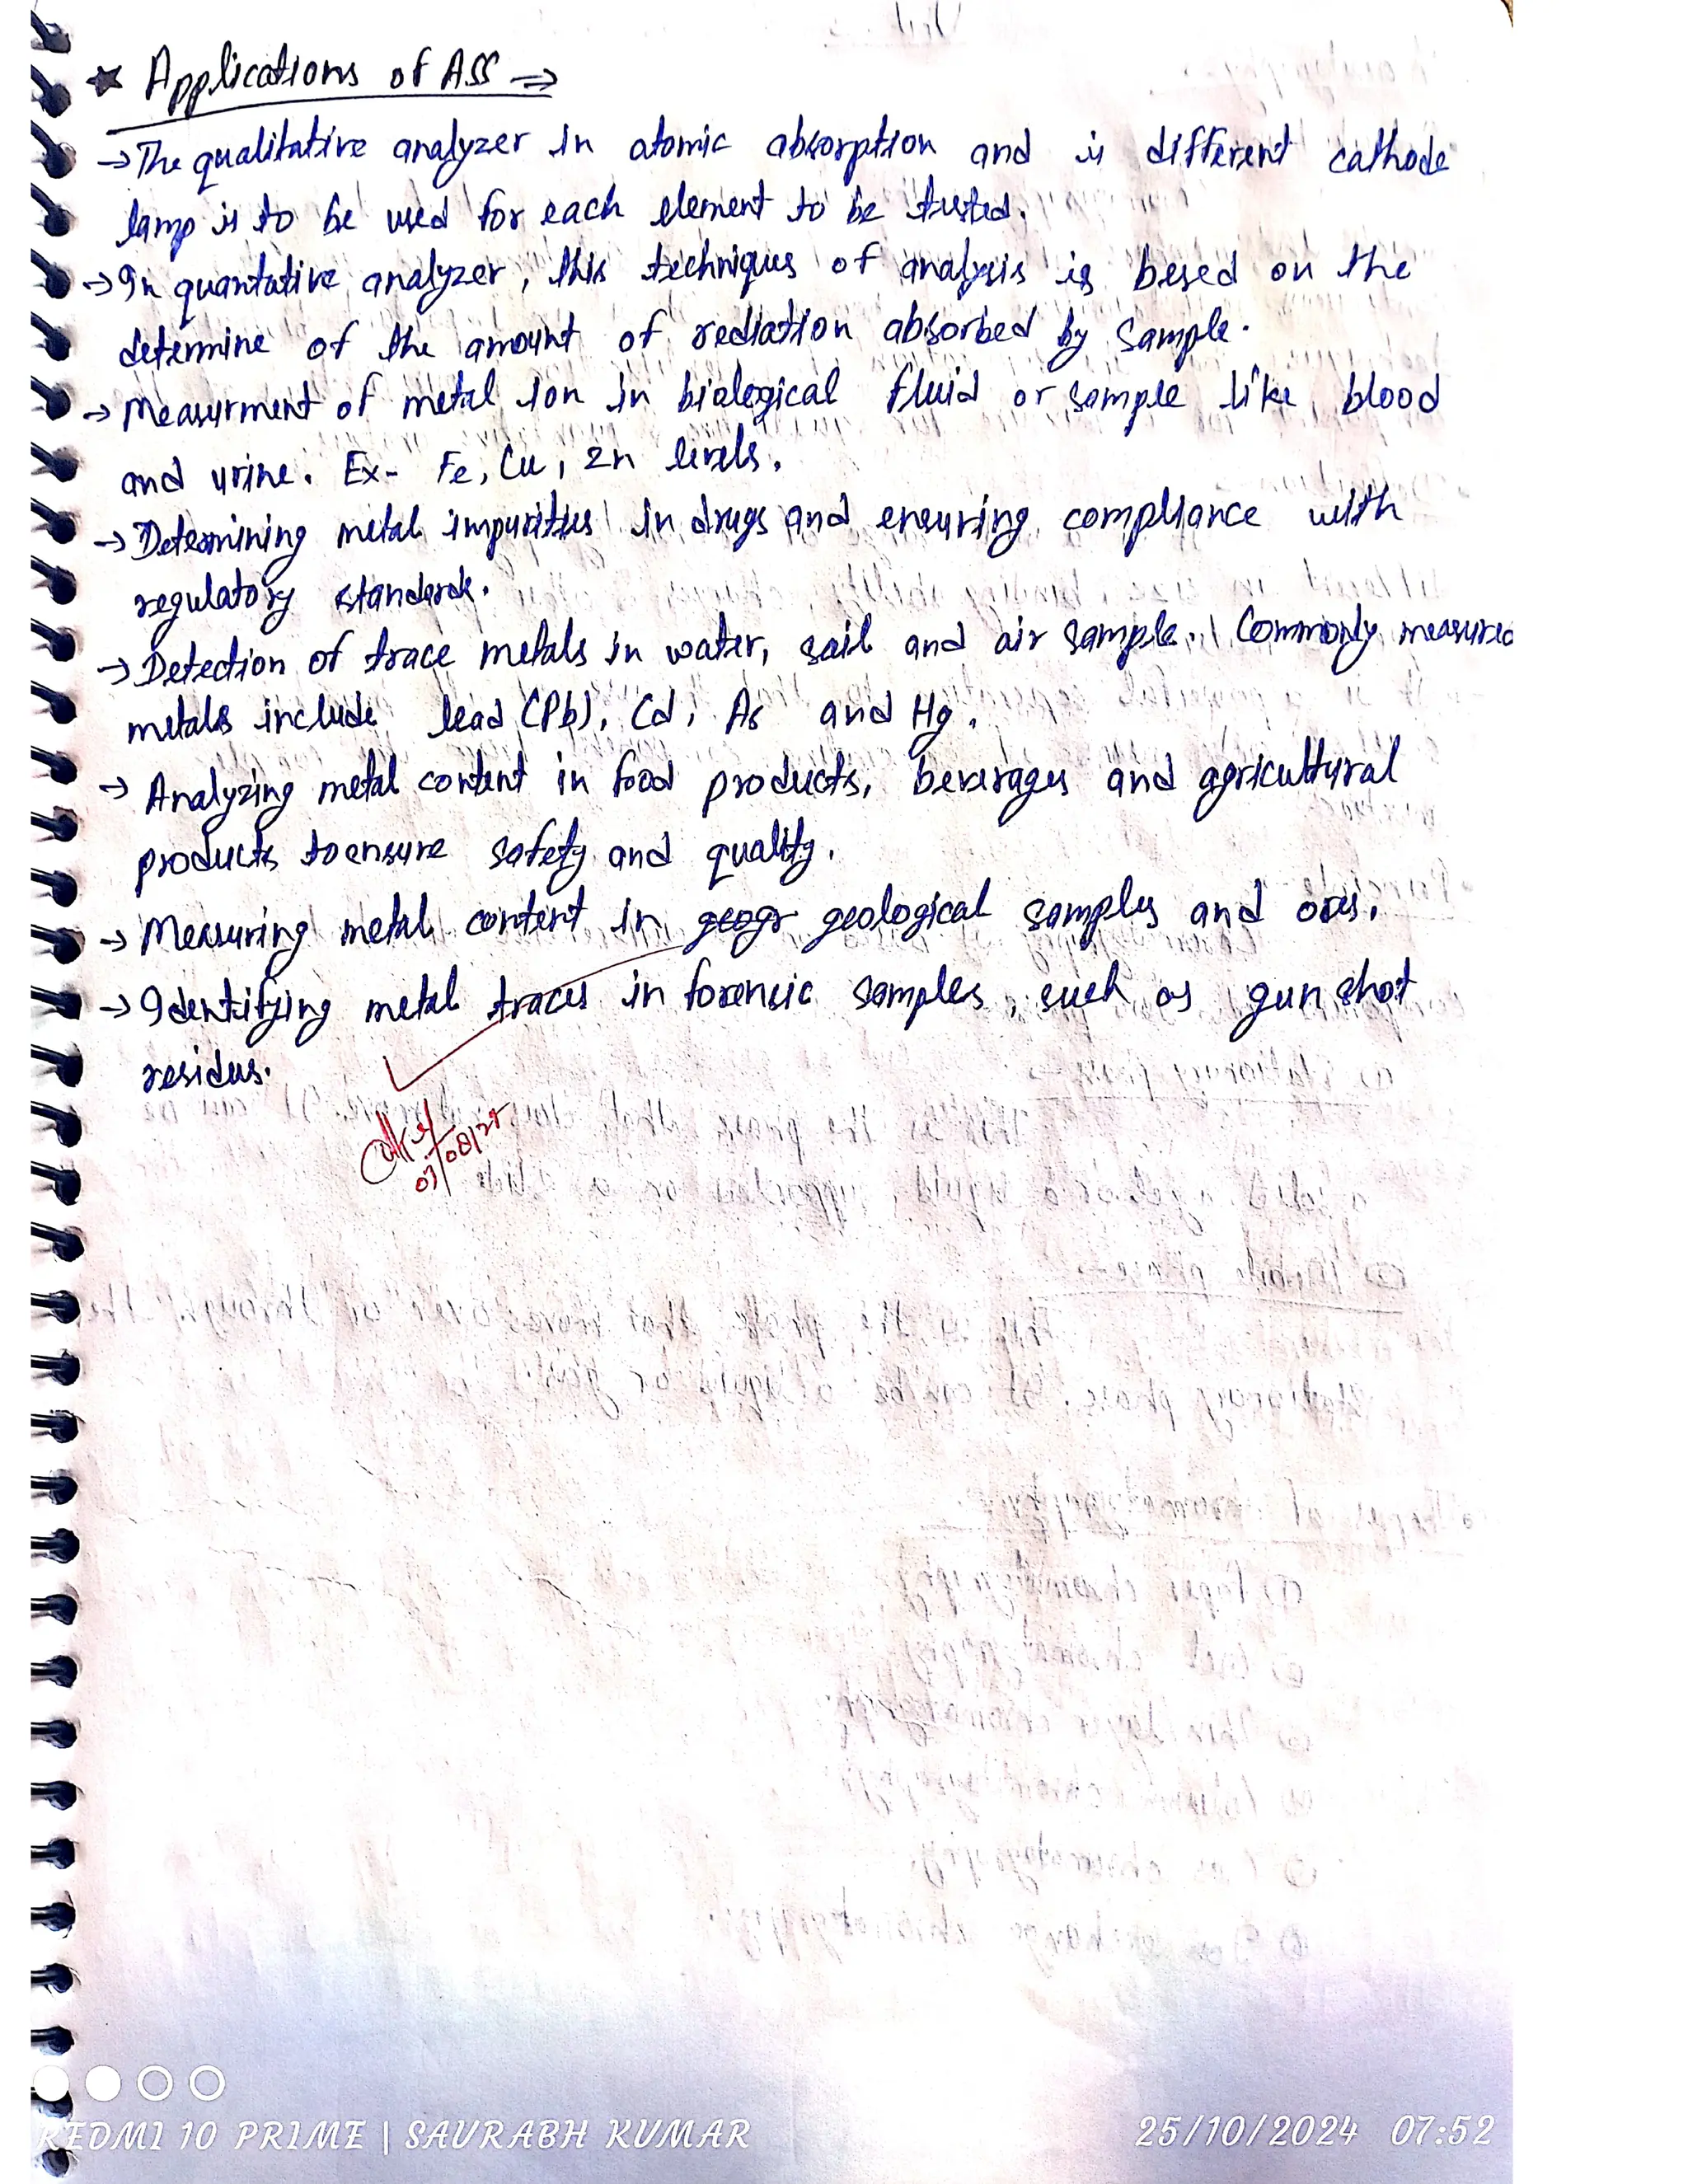 ★ Applications of ASS →
→ The qualitative analyzer in atomic absorption and is different cathode
lamp is to be used for each element to be tested.
→ In quantative analyzer, this techniques of analysis is besed on the
determine of the amount of rediation absorbed by sample.
→ Measurment of metal ion in biological fluid or sample like, blood
and urine. Ex- Fe, Cu, Zn levels.
→ Determining metal impurities in drugs and ensuring compliance with
regulatory standards.
→ Detection of trace metals in water, soil and air sample. Commonly measured
metals include lead (Pb), Cd, As and Hg.
→ Analyzing metal content in food products, beverages and agricultural
products to ensure safety and quality.
→ Measuring metal content in geogr geological samples and ores.
→ Identifying metal traces in forensic samples, such as gun shot
residus.
REDMI 10 PRIME | SAURABH KUMAR
25/10/2024 07:52